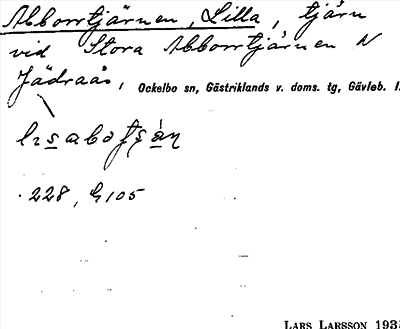 Abborrtjärnen, Lilla, tjärn
vid Stora Abborrtjärnen N
Jädraås, Ockelbo sn, Gästriklands v. doms. tg, Gävleb. l.
228, G 105
LARS LARSSON 193